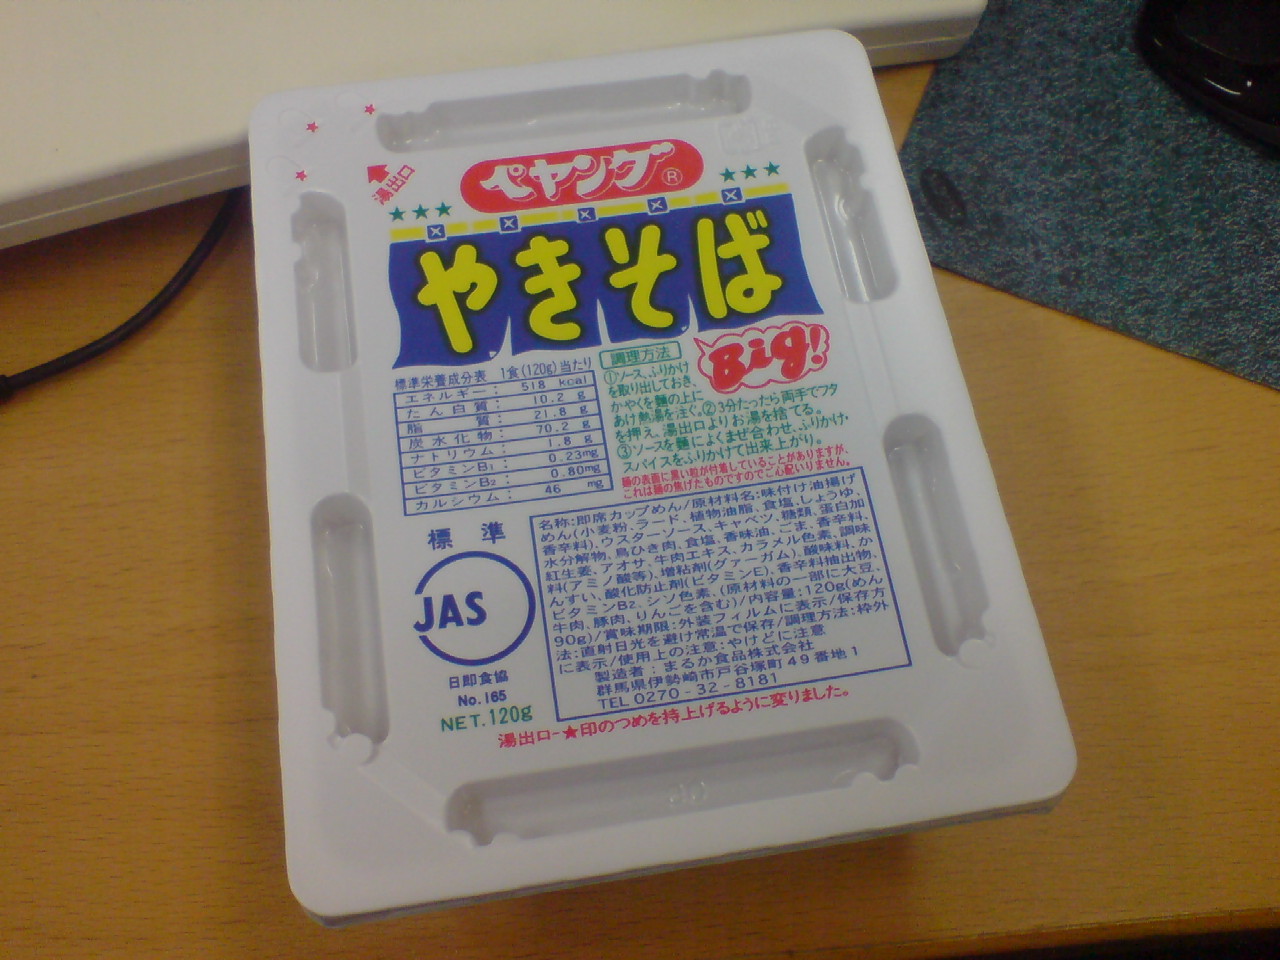 湯出口
ペヤング®
やきそば
Big!
標準栄養成分表 1食(120g)当たり
エネルギー: 518 kcal
たん白質: 10.2 g
脂質: 21.8 g
炭水化物: 70.2 g
ナトリウム: 1.8 g
ビタミンB1: 0.23mg
ビタミンB2: 0.80mg
カルシウム: 46 mg
調理方法
①ソース、ふりかけ
を取り出しておき、
かやくを麺の上に
あけ熱湯を注ぐ。②3分たったら両手でフタ
を押え、湯出口よりお湯を捨てる。
③ソースを麺によくまぜ合わせ、ふりかけ・
スパイスをふりかけて出来上がり。
麺の表面に黒い粒が付着していることがありますが、
これは麺の焦げたものですのでご心配いりません。
標準
JAS
日即食協
No.165
NET.120g
名称:即席カップめん/原材料名:味付け油揚げ
めん(小麦粉、ラード、植物油脂、食塩、しょうゆ、
香辛料)、ウスターソース、キャベツ、糖類、蛋白加
水分解物、鳥ひき肉、食塩、香味油、ごま、香辛料、
紅生姜、アオサ、牛肉エキス、カラメル色素、調味
料(アミノ酸等)、増粘剤(グァーガム)、酸味料、か
んすい、酸化防止剤(ビタミンE)、香辛料抽出物、
ビタミンB2、シソ色素、(原材料の一部に大豆、
牛肉、豚肉、りんごを含む)/内容量:120g(めん
90g)/賞味期限:外装フィルムに表示/保存方
法:直射日光を避け常温で保存/調理方法:枠外
に表示/使用上の注意:やけどに注意
製造者:まるか食品株式会社
群馬県伊勢崎市戸谷塚町49番地1
TEL 0270-32-8181
湯出口-★印のつめを持上げるように変りました。